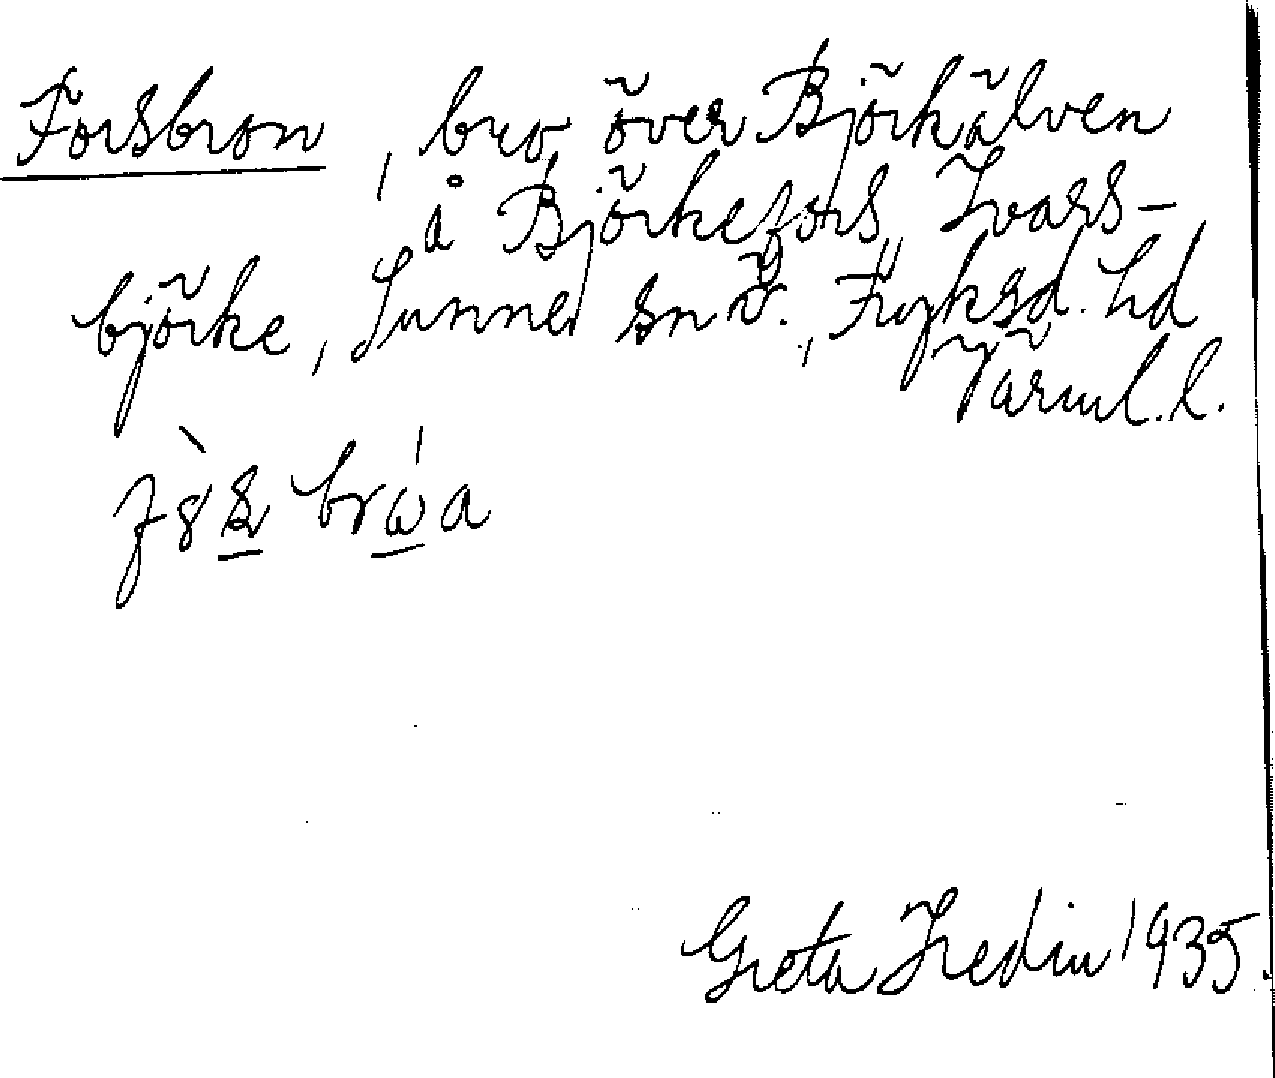 Forsbron, bro över Björkälven
å Björkefors, Ivars-
björke, Sunne sn v., Fryksd. hd
Värml. l.
Greta Hedin 1935.